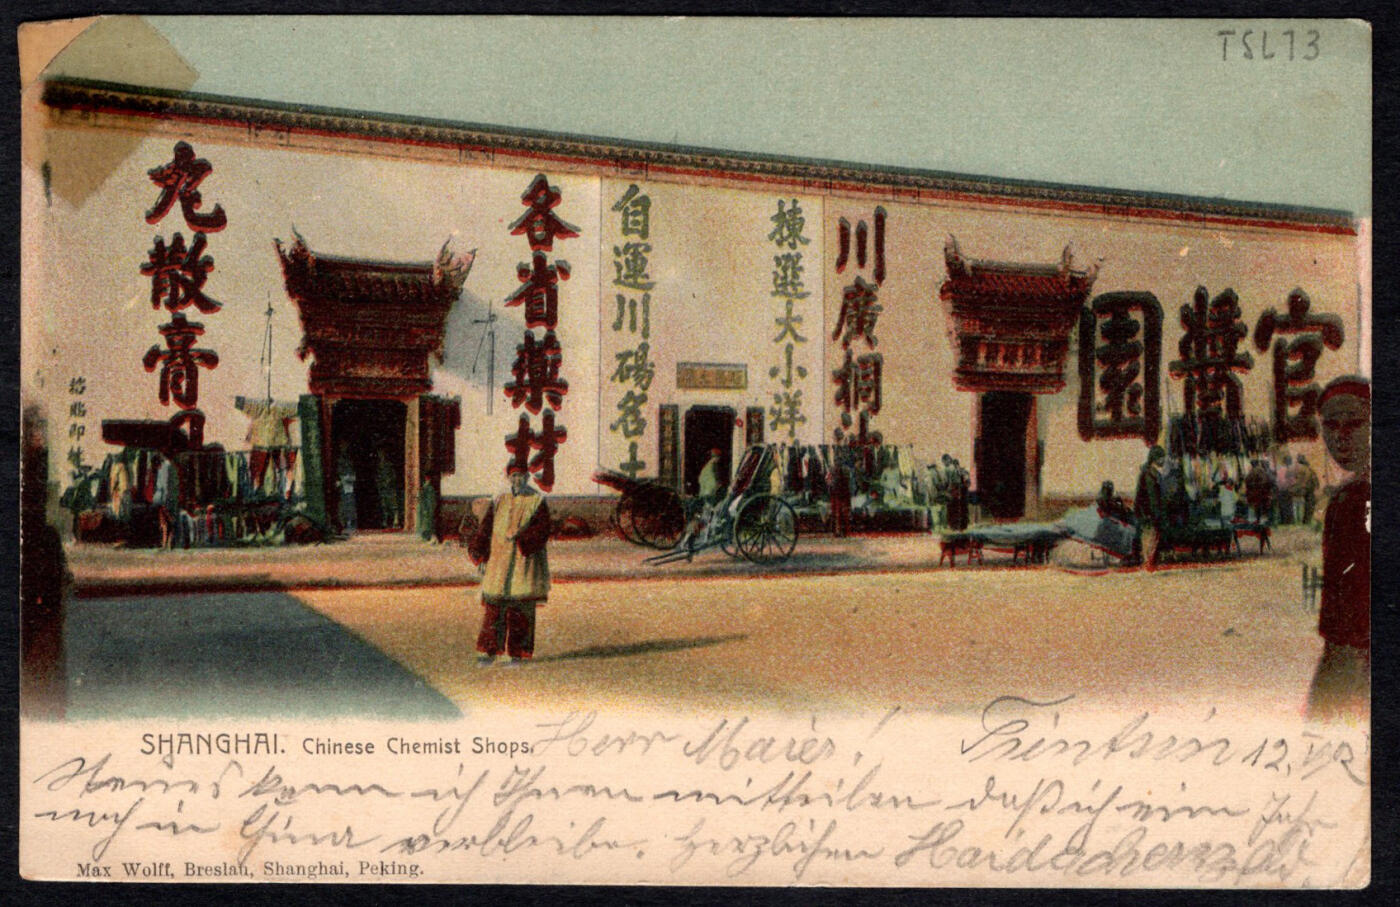 TSL13
丸散膏丹
各省藥材
自運川碭名土
棟選大小洋
川廣桐油
園醬官
SHANGHAI. Chinese Chemist Shops.
Herr Maier! Tsintsin 12.
kann ich Ihnen mitteilen daß ich ein Jahr
noch in China verbleibe. herzlichen
Max Wolff, Breslau, Shanghai, Peking.